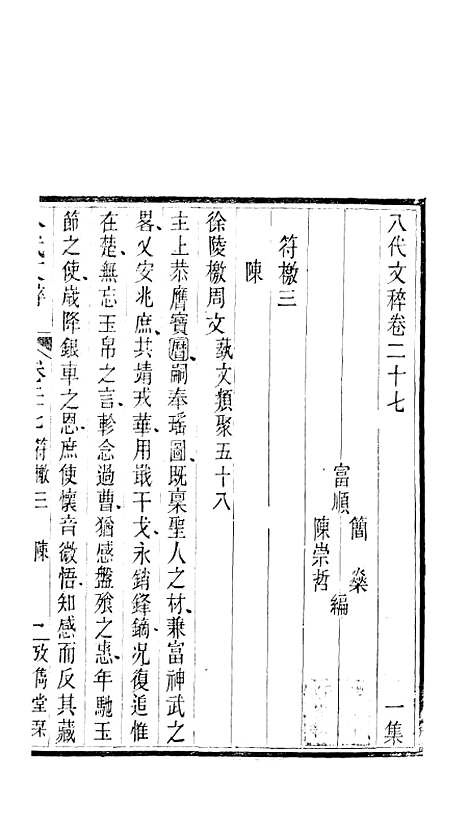 八代文稡卷二十七
一集
簡燊
富順 編
陳崇哲
符檄三
陳
徐陵檄周文 蓺文類聚五十八
主上恭膺寶曆嗣奉瑤圖旣稟聖人之材兼富神武之
畧乂安兆庶共靖戎華用戢干戈永銷鋒鏑况復追惟
在楚無忘玉帛之言軫念過曹猶感盤飱之恵年馳玉
節之使歲降銀車之恩庶使懷音徵悟知感而反其藏
卷二十七 符檄三 陳 一 攷雋堂栞